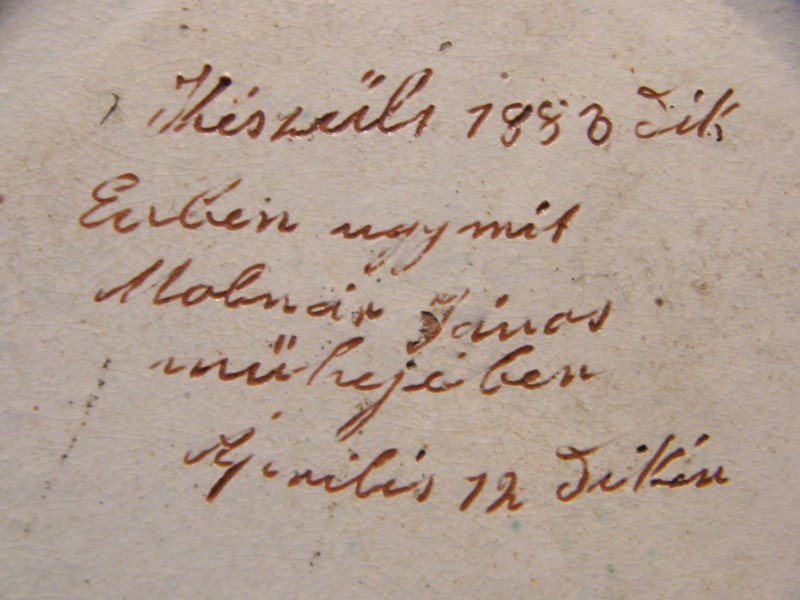 Készűlt 1883 dik
Evben ugymit
Molnár János
műhejében
Április 12 dikén